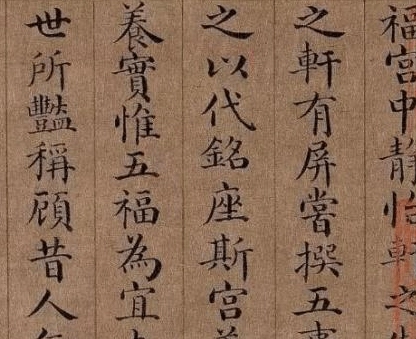 福宫中静怡軒之
之軒有屏嘗撰五
之以代銘座斯宫
養實惟五福為宜
世所豔稱顧昔人